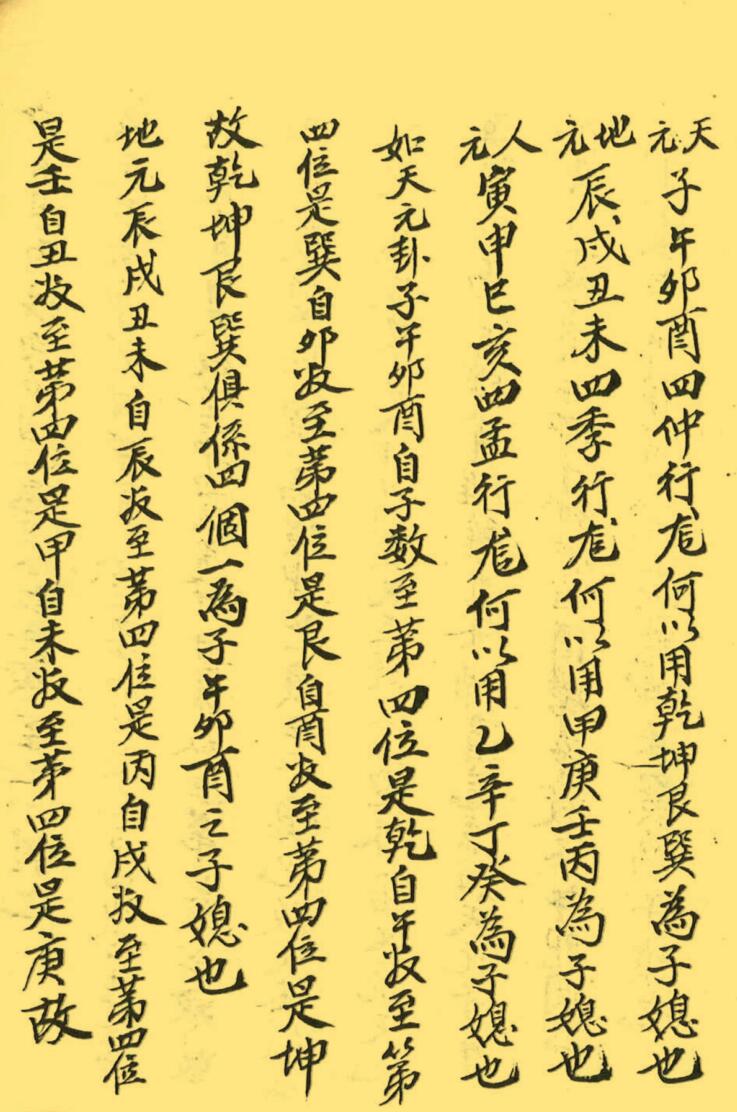 天元子午卯酉四仲行龙何以用乾坤艮巽為子媳也
地元辰戌丑未四季行龙何以用甲庚壬丙為子媳也
人元寅申巳亥四孟行龙何以用乙辛丁癸為子媳也
如天元卦子午卯酉自子数至苐四位是乾自午数至第
四位是巽自卯数至苐四位是艮自酉数至苐四位是坤
故乾坤艮巽俱係四個一為子午卯酉之子媳也
地元辰戌丑未自辰数至苐四位是丙自戌数至苐四位
是壬自丑数至苐四位是甲自未数至苐四位是庚故